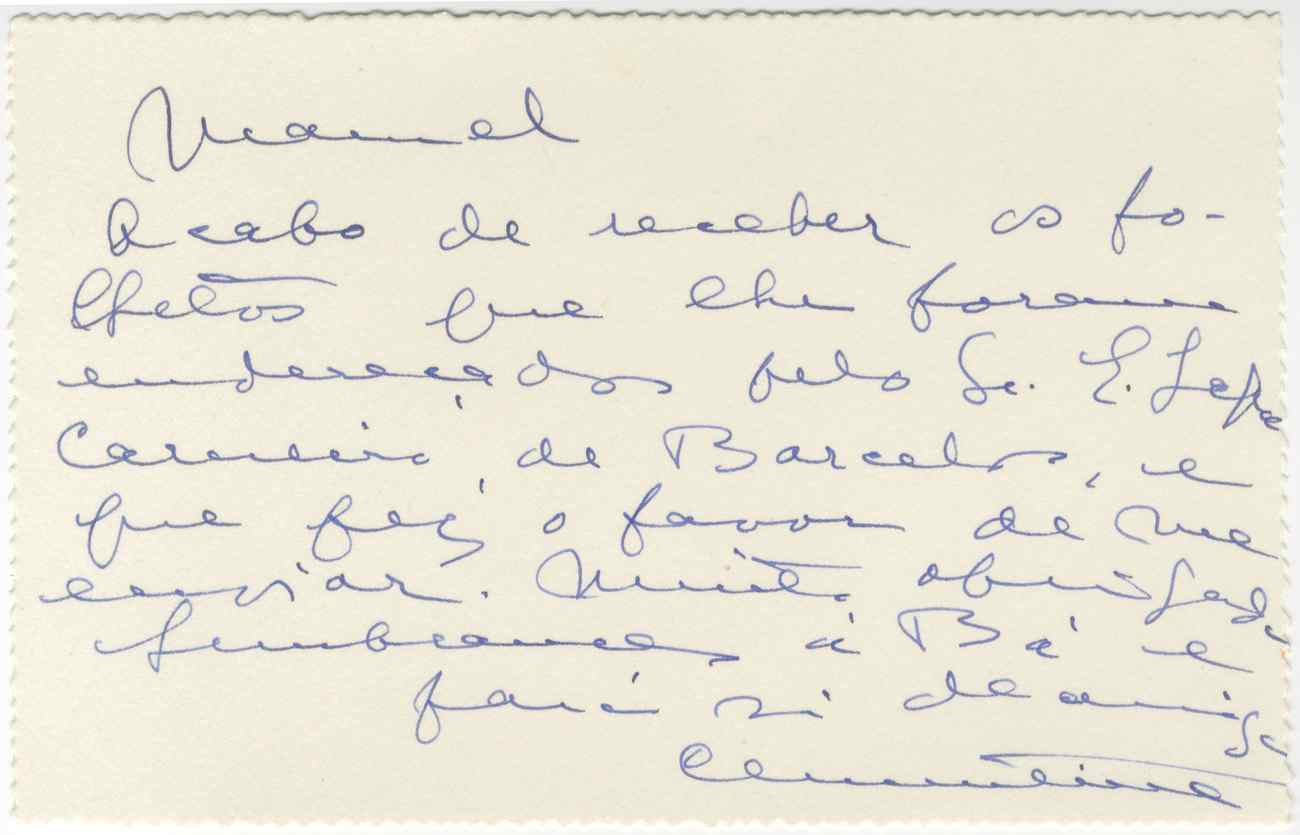 Manuel
Acabo de receber os fo-
lhetos que lhe foram
endereçados pelo Sr. E. Lapa
Carneiro, de Barcelos, e
que fez o favor de me
enviar. Muito obrigada
Lembranças à Bá e
para si da amiga
Clementina